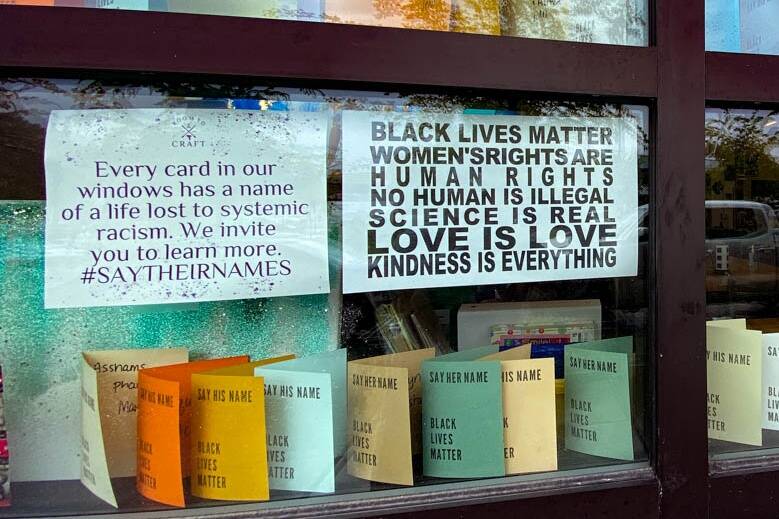 CRAFT
Every card in our
windows has a name
of a life lost to systemic
racism. We invite
you to learn more.
#SAYTHEIRNAMES
BLACK LIVES MATTER
WOMEN'SRIGHTSARE
HUMAN RIGHTS
NO HUMAN IS ILLEGAL
SCIENCE IS REAL
LOVE IS LOVE
KINDNESS IS EVERYTHING
SAY HIS NAME
BLACK
LIVES
MATTER
SAY HIS NAME
BLACK
LIVES
MATTER
SAY HIS NAME
LACK
VES
ATTER
SAY HER NAME
BLACK
LIVES
MATTER
SAY HER NAME
BLACK
LIVES
MATTER
IS NAME
K
ER
SAY HER NAME
BLACK
LIVES
MATTER
Y HIS NAME
CK
ES
TER
SA
BL
LIV
MA